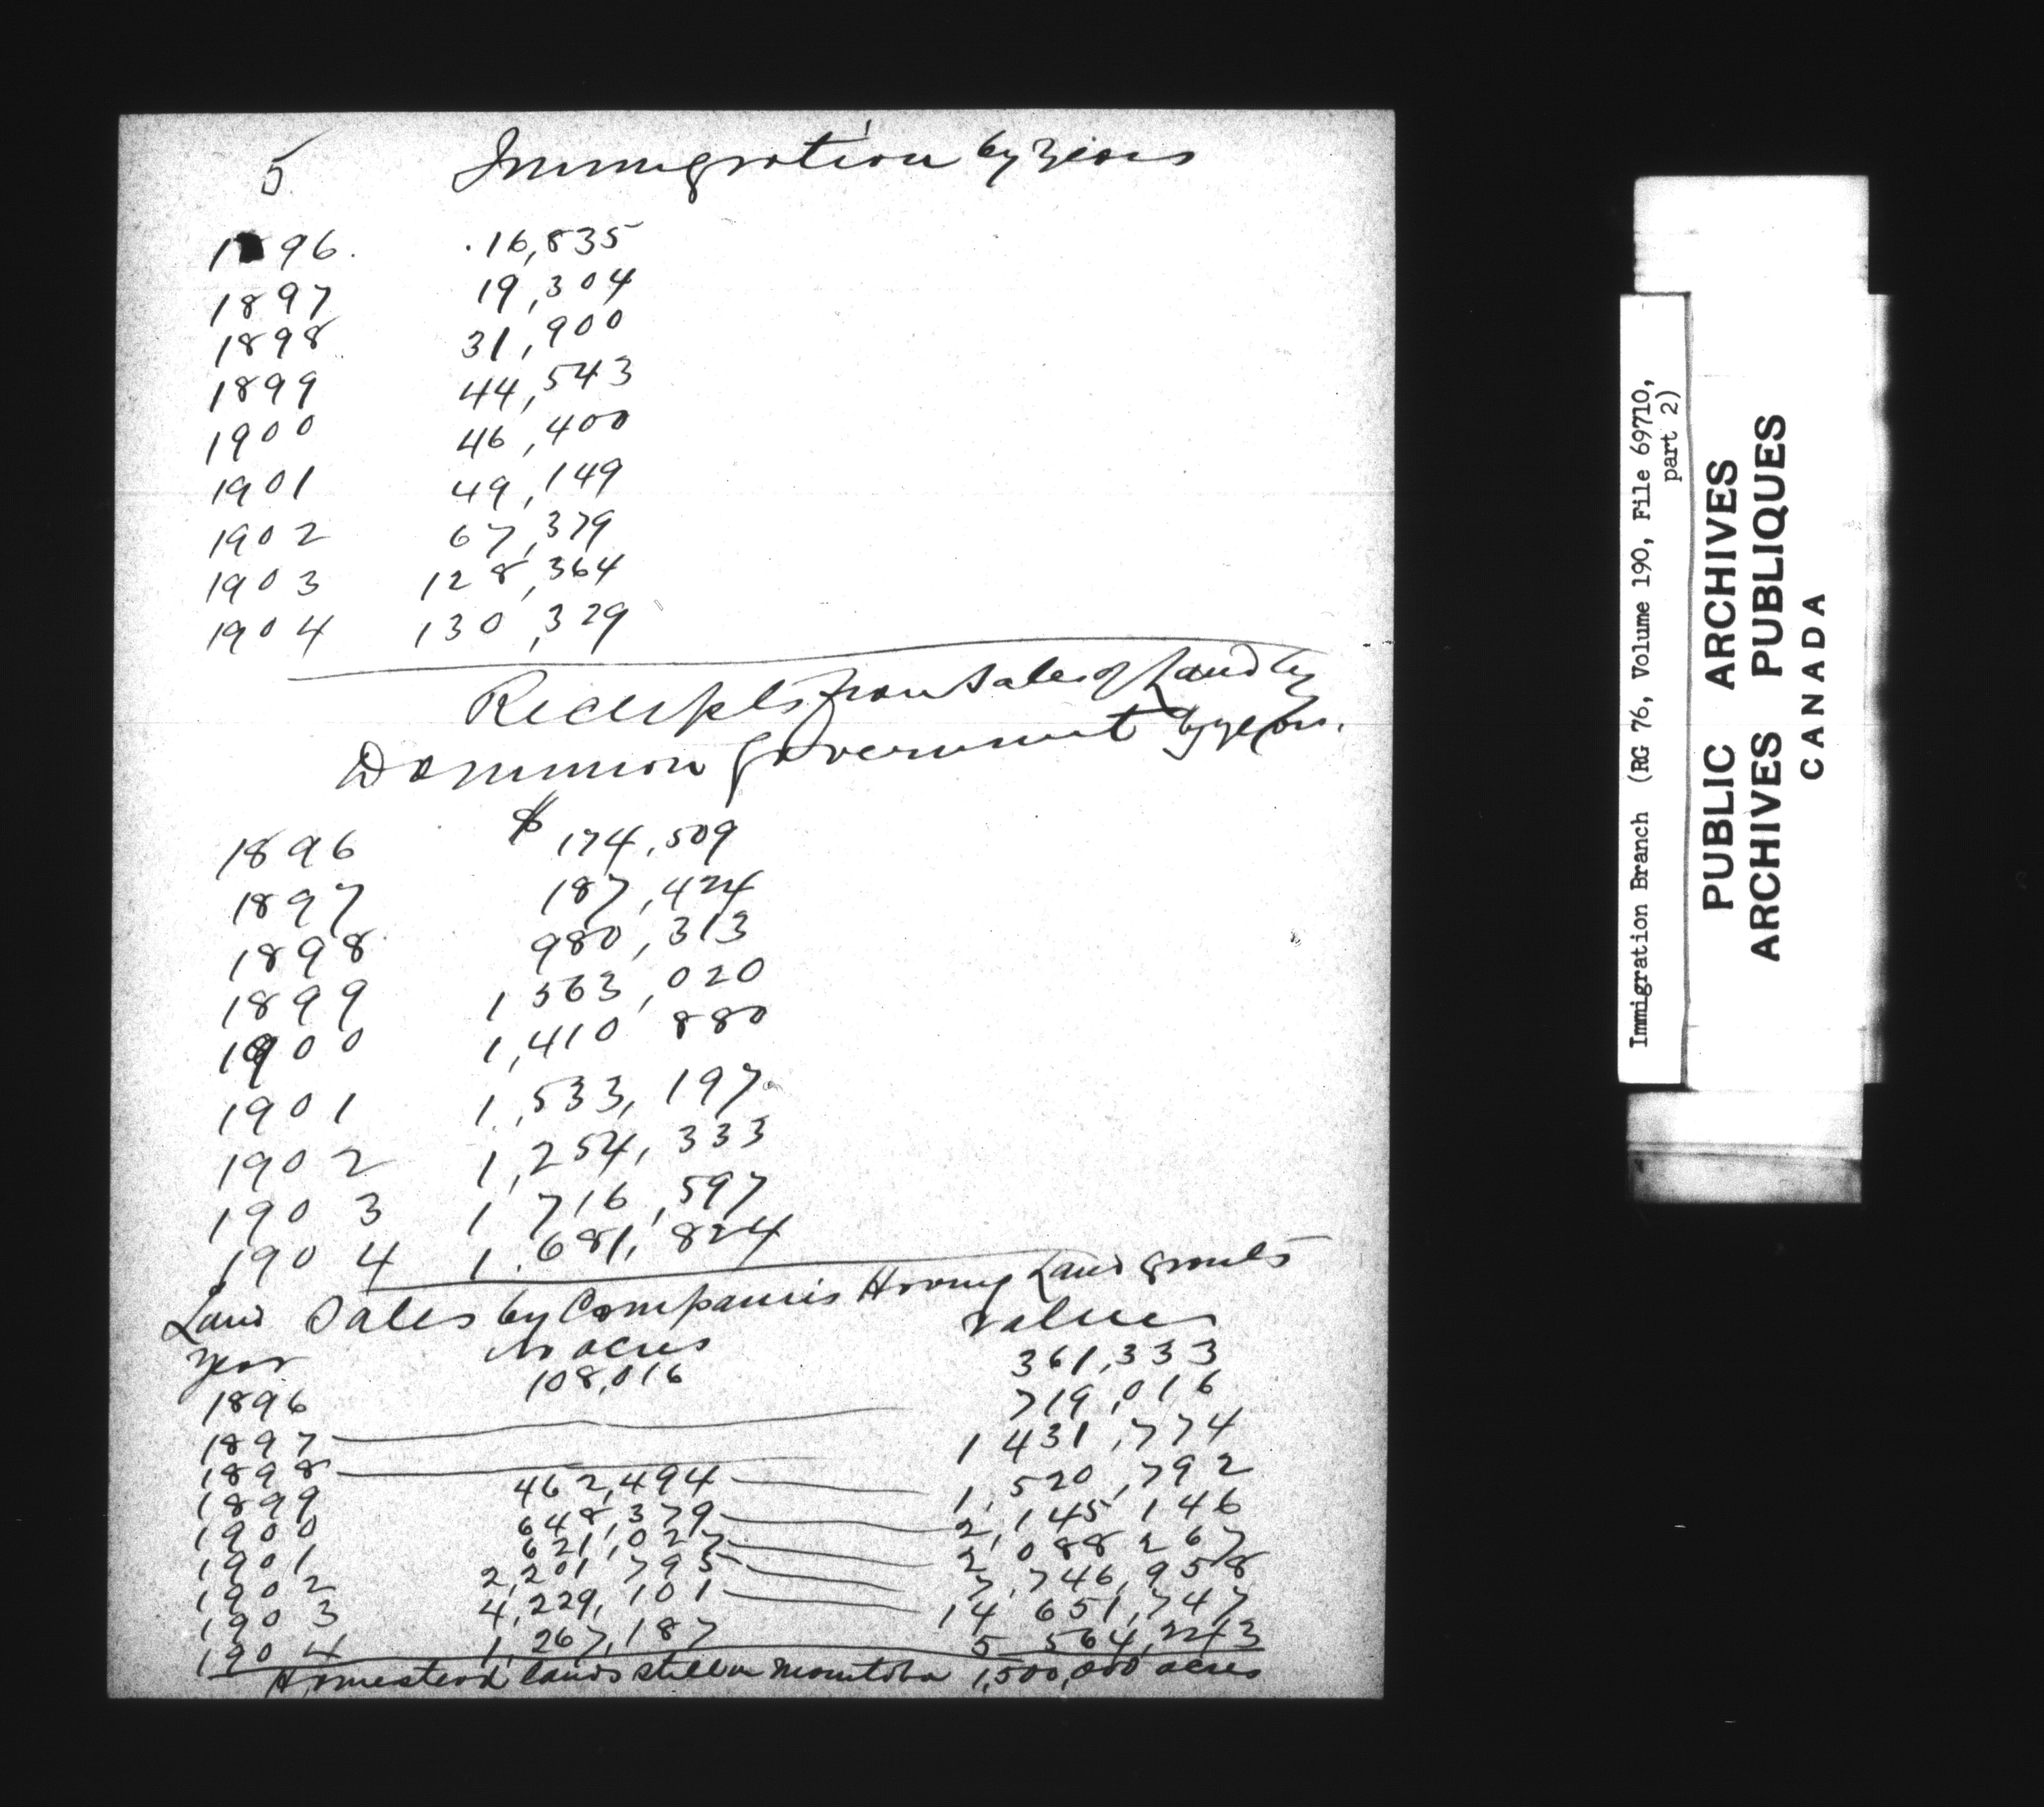 5 Immigration by years
1896. 16,835
1897 19,304
1898 31,900
1899 44,543
1900 46,400
1901 49,149
1902 67,379
1903 128,364
1904 130,329
Receipts from Sale of Land by
Dominion Government by years.
1896 $ 174,509
1897 187,424
1898 980,313
1899 1 563,020
1900 1,410 880
1901 1,533,197
1902 1,254,333
1903 1 716,597
1904 1.681,824
Land Sales by Companies Having Land grants
Year No acres Values
1896 108,016 361,333
1897 719,016
1898 1 431,774
1899 462,494 1,520,792
1900 648,379 2,145 146
1901 621,027 2 088 267
1902 2,201 795 7,746,958
1903 4,229,101 14 651,747
1904 1,267,187 5 564,243
Homestead lands still in Manitoba 1,500,000 acres
Immigration Branch (RG 76, Volume 190, File 69710,
part 2)
PUBLIC ARCHIVES
ARCHIVES PUBLIQUES
CANADA